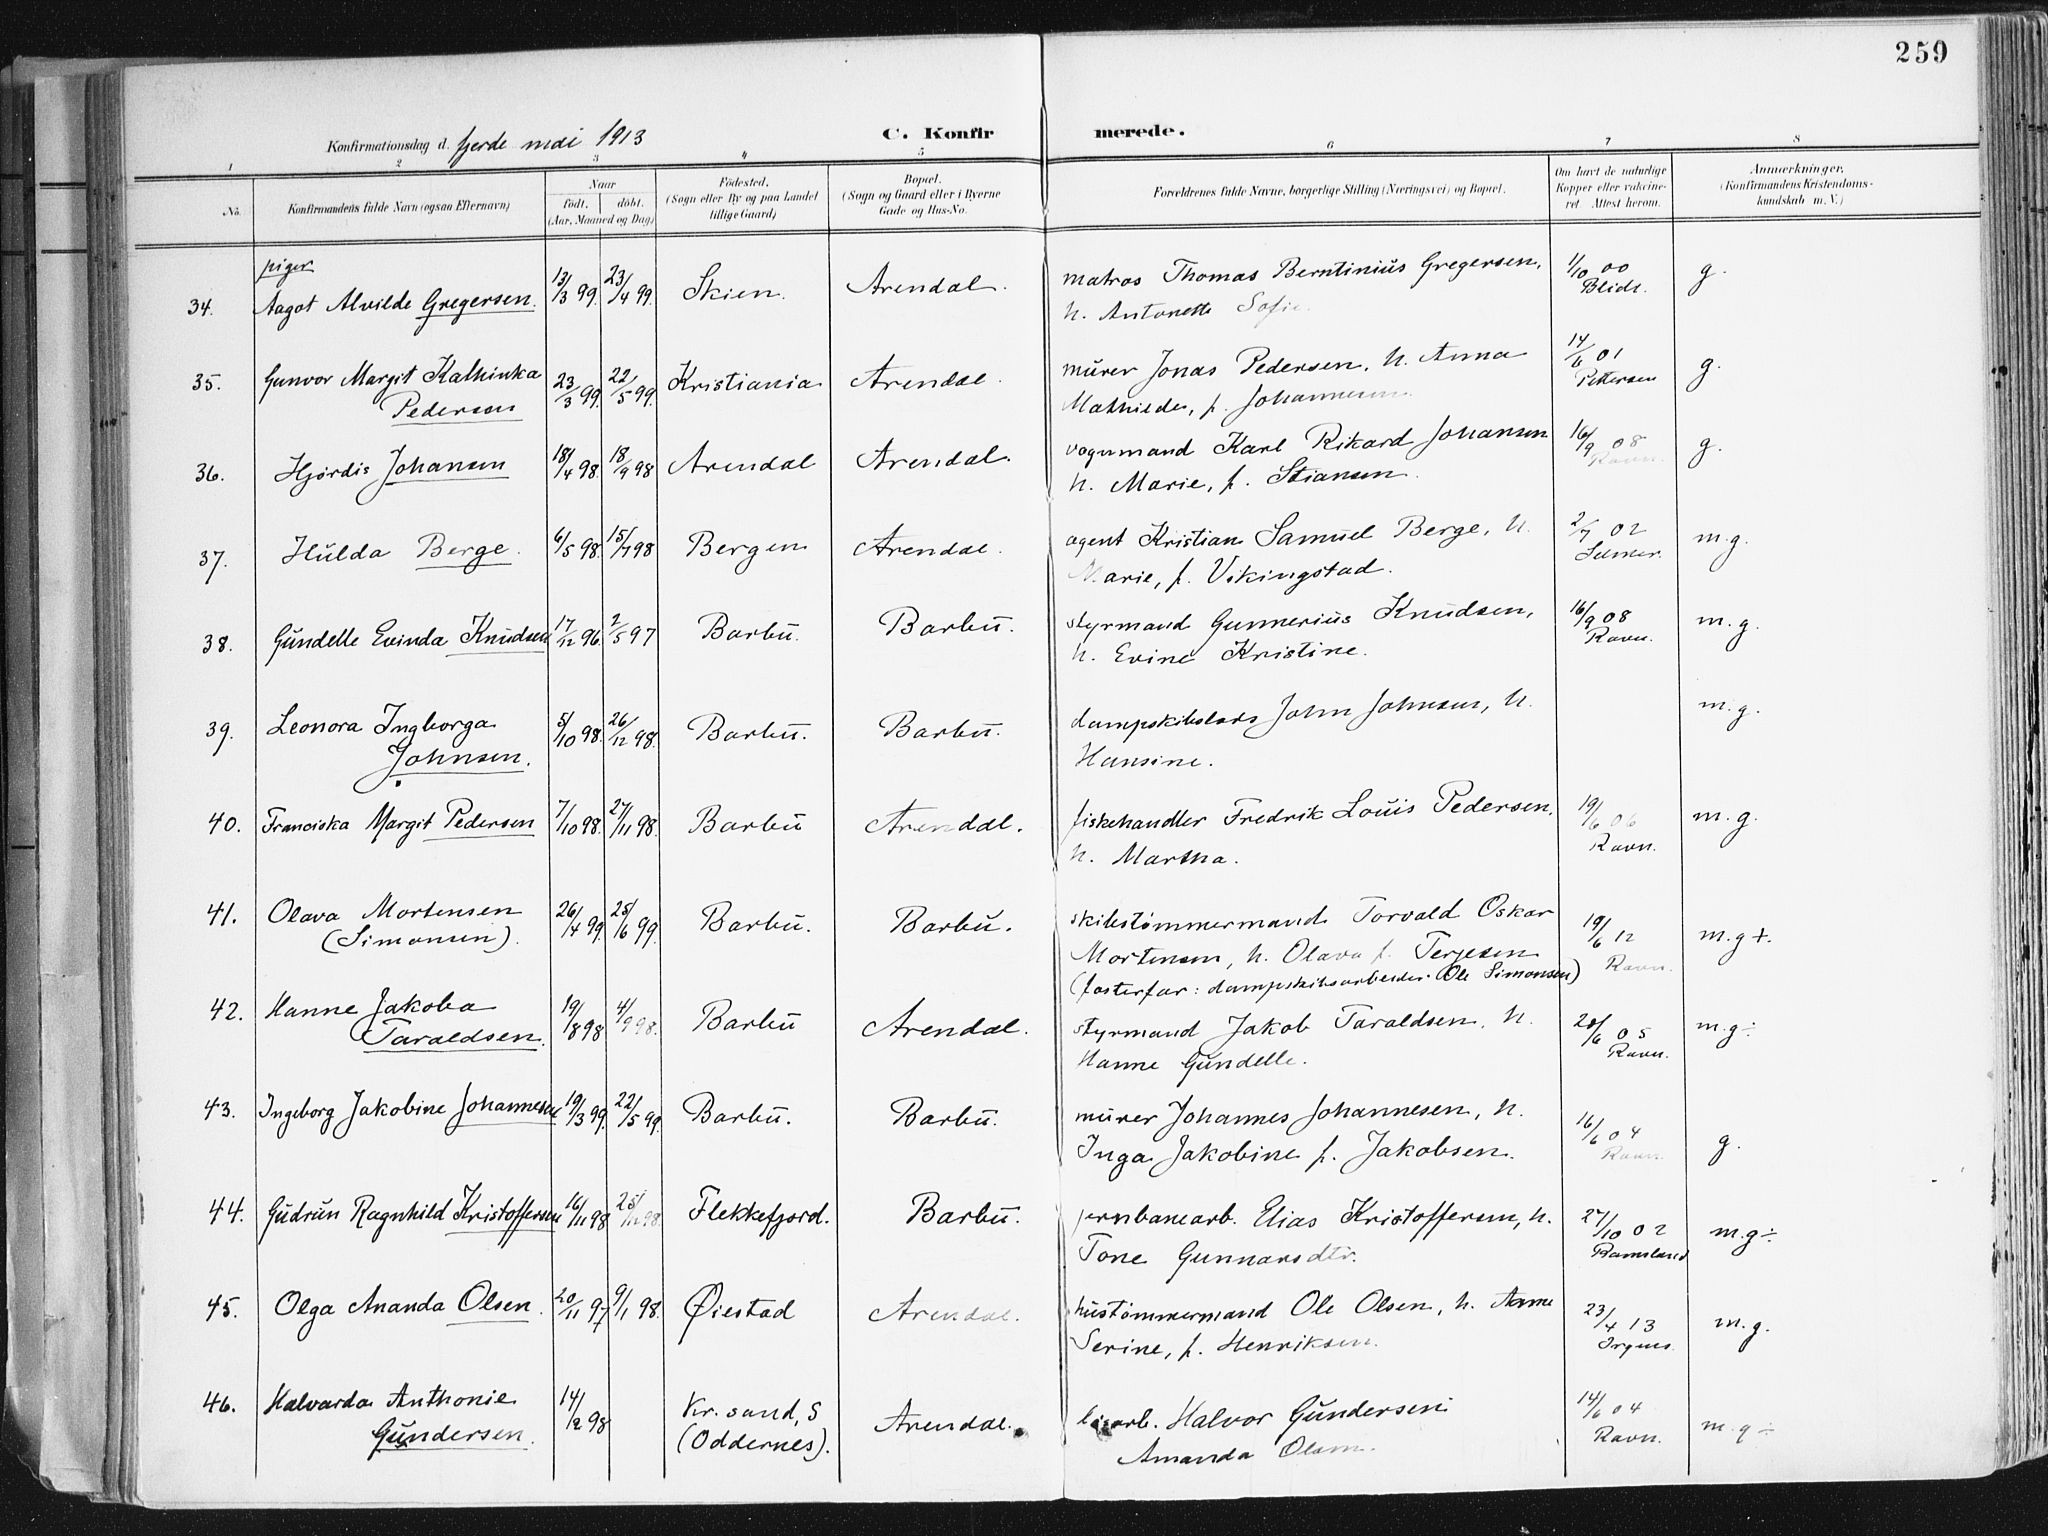 259
Konfirmationsdag d. fjerde mai 1913
C. Konfirmerede.
1 2 3 4 5 6 7 8
No. Konfirmandens fulde Navn (ogsaa Efternavn) Naar født. døbt. (Aar, Maaned og Dag) Fødested. (Sogn eller By og paa Landet tillige Gaard) Bopæl. (Sogn og Gaard eller i Byerne Gade og Hus-No. Forældrenes fulde Navne, borgerlige Stilling (Næringsvei) og Bopæl. Om havt de naturlige Kopper eller vakcineret. Attest herom. Anmærkninger. (Konfirmandens Kristendomskundskab m. V.)
piger
34. Aagot Alvilde Gregersen. 13/3 99. 23/4 99. Skien. Arendal. matros Thomas Berntinius Gregersen, 1/10 00 g.
h. Antonette Sofie. Blidt.
35. Gunvor Margit Kathinka 23/3 99. 22/5 99. Kristiania Arendal. murer Jonas Pedersen, h. Anna 14/6 01 g.
Pedersen Mathilde, f. Johannesen. Pettersen
36. Hjørdis Johansen 18/4 98. 18/9 98 Arendal Arendal. vognmand Karl Rikard Johansen 16/9 08 g.
h. Marie, f. Stiansen. Ravn.
37. Hulda Berge. 6/5 98. 15/7 98 Bergen Arendal. agent Kristian Samuel Berge, h. 2/7 02 m.g.
Marie, f. Vikingstad. Selmer.
38. Gundelle Evinda Knudsen 17/12 96. 2/5 97 Barbu. Barbu. styrmand Gunnerius Knudsen, 16/9 08 m.g.
h. Evine Kristine. Ravn.
39. Leonora Ingborga 5/10 98. 26/12 98. Barbu. Barbu. John Johnsen, h. m.g.
Johnsen. Hansine.
40. Franciska Margit Pedersen 7/10 98. 27/11 98. Barbu Arendal. fiskehandler Fredrik Louis Pedersen, 19/6 06 m.g.
h. Martha. Ravn.
41. Olava Mortensen 26/4 99. 25/6 99. Barbu. Barbu. skibstømmermand Torvald Oskar 19/6 12 m.g+.
(Simonsen). Mortensen, h. Olava f. Terjesen Ravn.
(fosterfar: dampskibsarbeider Ole Simonsen)
42. Hanne Jakoba 19/8 98 4/9 98. Barbu Arendal. styrmand Jakob Taraldsen, h. 28/6 05 m.g÷
Taraldsen. Hanne Gundelle. Ravn.
43. Ingeborg Jakobine Johannesen 19/3 99. 22/5 99. Barbu. Barbu. murer Johannes Johannesen, h. 16/6 04 g.
Inga Jakobine f. Jakobsen. Ravn.
44. Gudrun Ragnhild Kristoffersen 16/11 98 25/12 98. Flekkefjord. Barbu. jernbanearb. Elias Kristoffersen, h. 27/10 02 m.g÷
Tone Gunnarsdtr. Ramsland
45. Olga Ananda Olsen. 20/11 97 9/1 98. Øiestad Arendal. hustømmermand Ole Olsen, h. Anne 23/4 13 m.g.
Serine, f. Henriksen.
46. Halvarda Anthonie 14/2 98 Kr.sand, S Arendal. Halvor Gundersen: 14/6 04 m.g÷
Gundersen. (Oddernes). Amanda Olsen. Ravn.